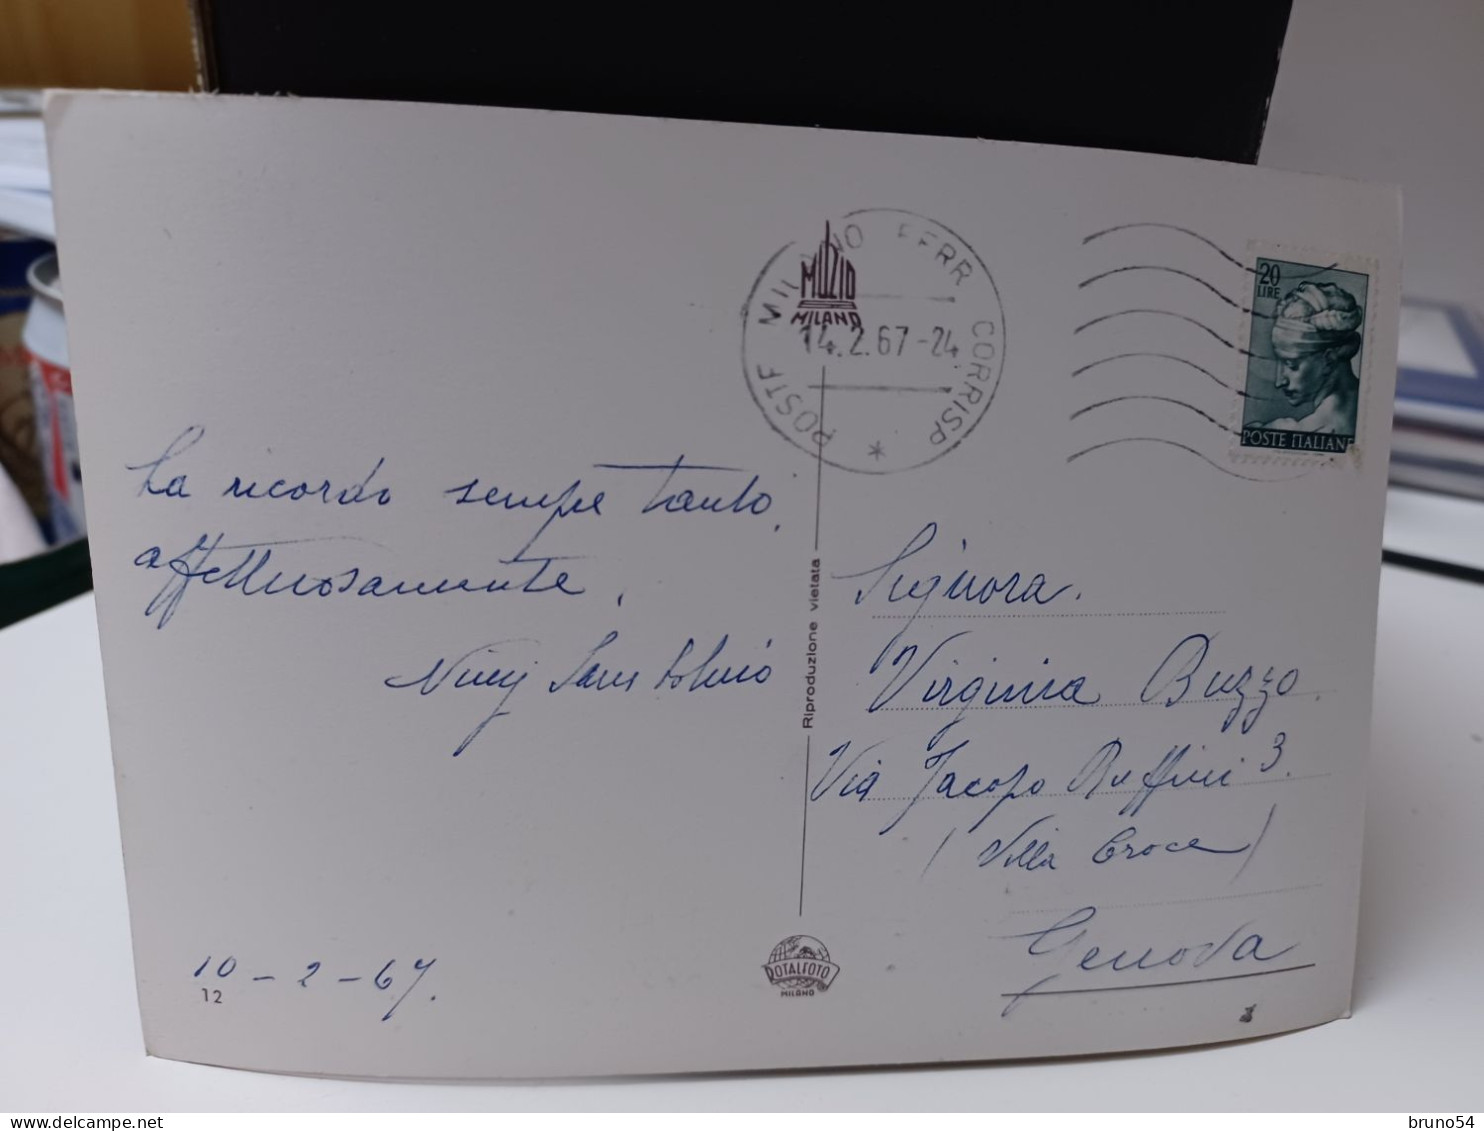 POSTE MILANO FERR CORRISP *
MUZIO
MILANO
14.2.67-24
20
LIRE
POSTE ITALIANE
La ricordo sempre tanto,
affettuosamente.
Riproduzione vietata
Signora.
Virginia Buzzo.
Via Jacopo Ruffini 3.
(Villa Croce)
Genova
10-2-67.
12
ROTALFOTO
MILANO
delcampe.net
bruno54